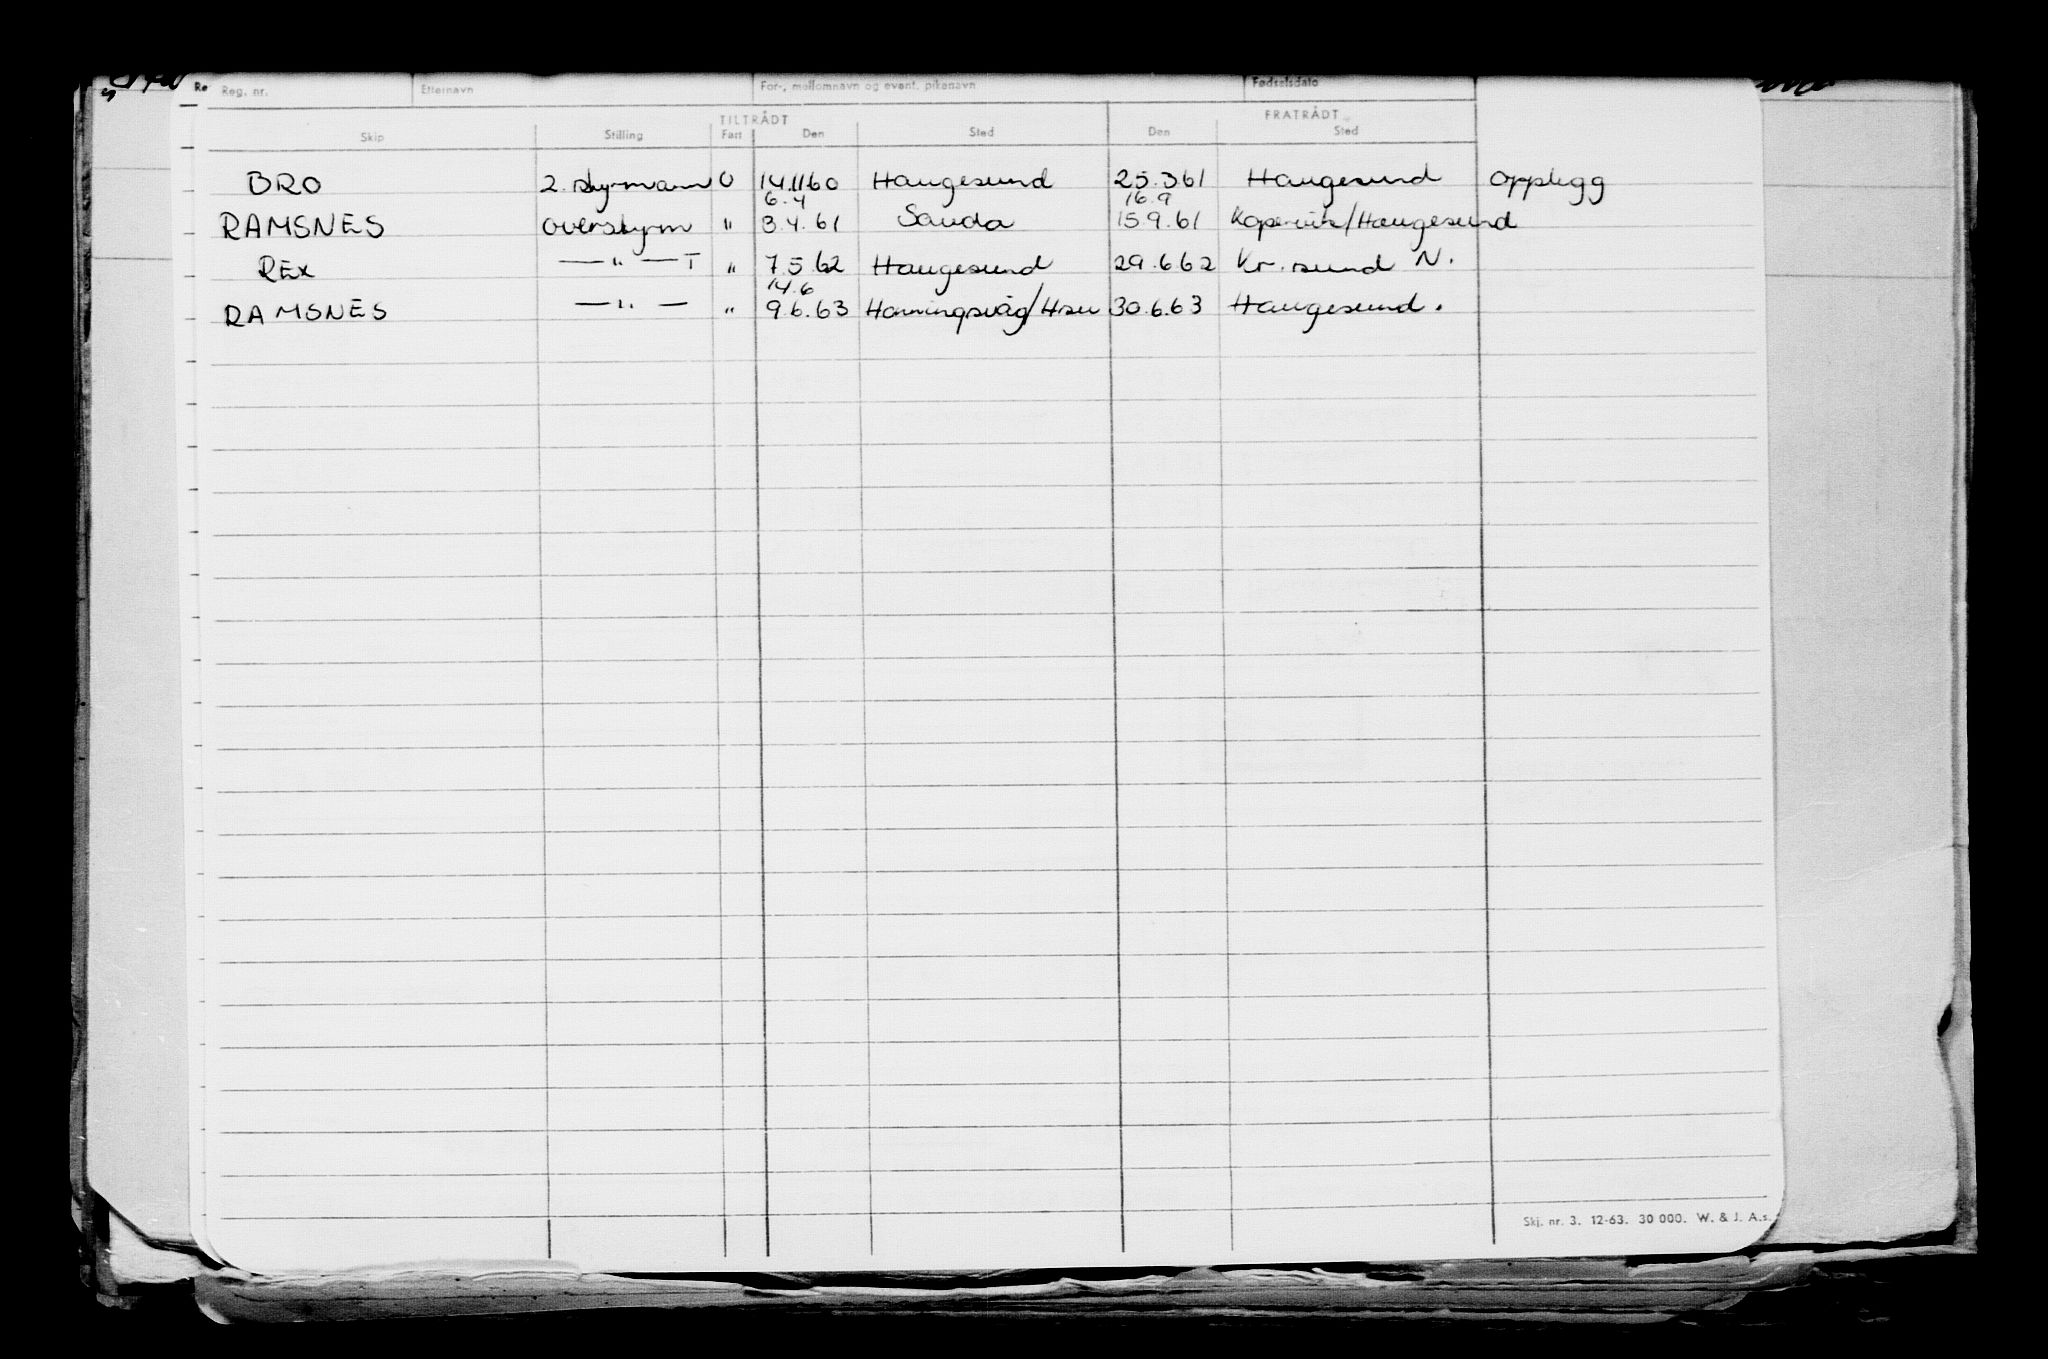 Reg. nr. Etternavn For-, mellomnavn og event. pikenavn Fødselsdato
TILTRÅDT FRATRÅDT
Skip Stilling Fart Den Sted Den Sted
BRO 2. styrmann U 14.11 60 Haugesund 25.3 61 Haugesund Opplegg
6.4 16.9
RAMSNES overstyrm " 3.4.61 Sauda 15 9.61 Kopervik/Haugesund
REX — " — T " 7.5.62 Haugesund 29.6 62 Kr. sund N.
14.6
RAMSNES — " — " 9.6.63 Honningsvåg/Hsu 30.6.63 Haugesund.
Skj. nr. 3. 12-63. 30 000. W. & J. A.s.